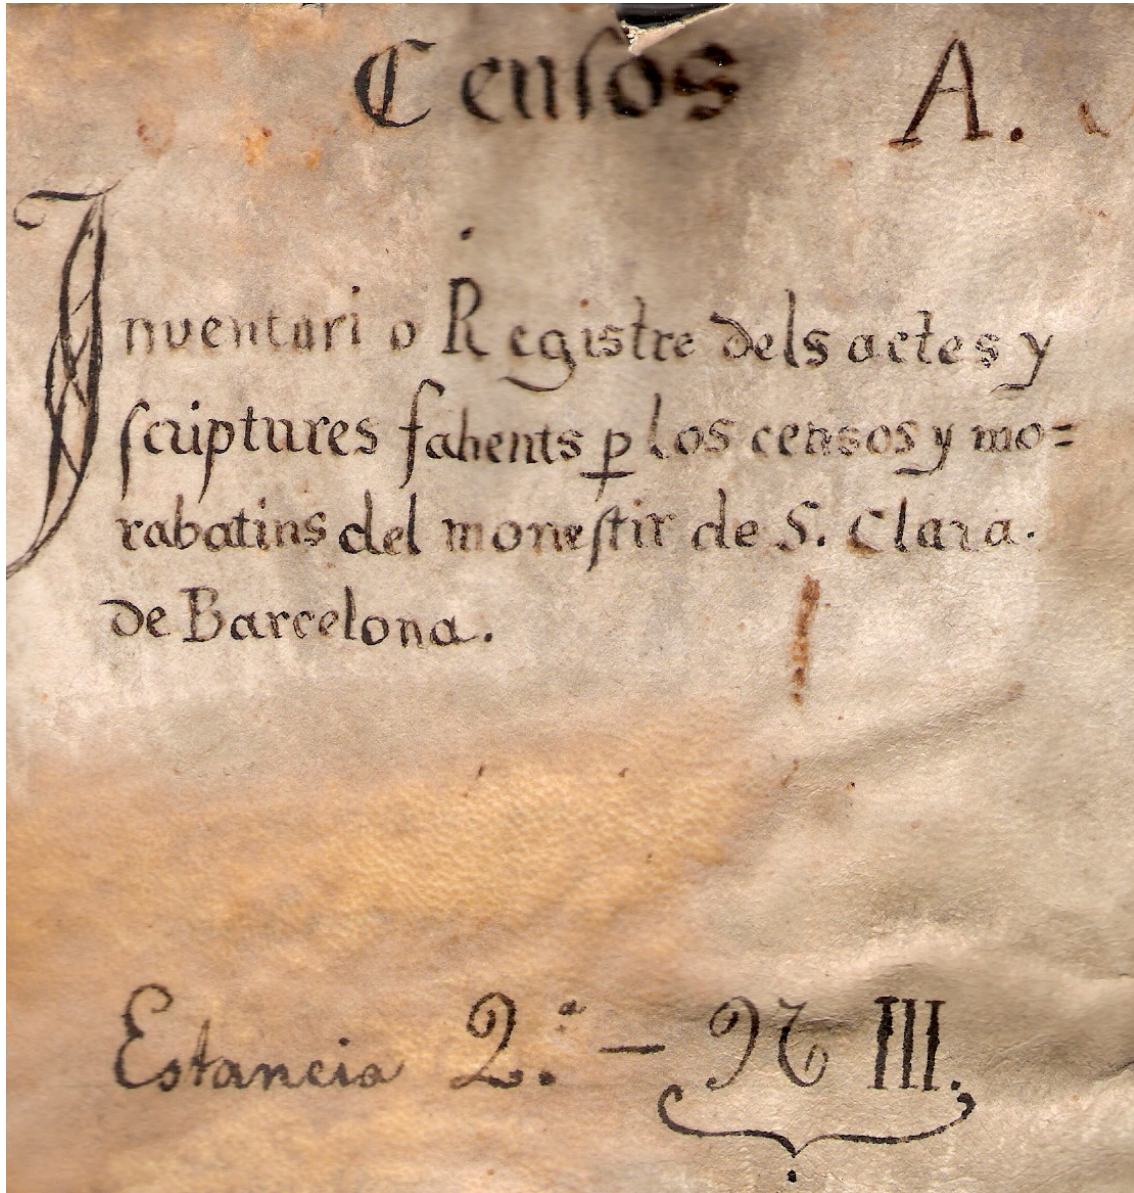 Censos A.
Inventari o Registre dels actes y
scriptures fahents p los censos y mo=
rabatins del monestir de S. Clara.
de Barcelona.
Estancia 2.ª — N III.